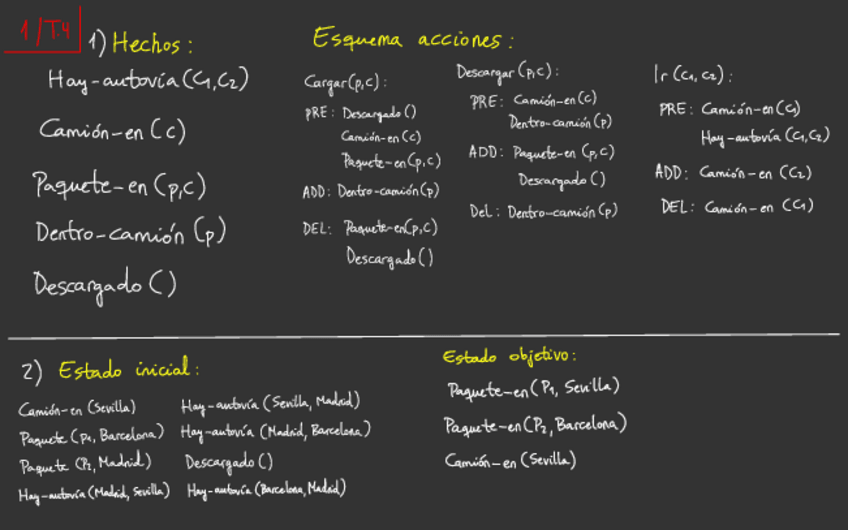 1/T.4
1) Hechos:
Hay-autovía (C1, C2)
Camión-en (C)
Paquete-en (p,c)
Dentro-camión (p)
Descargado ()
Esquema acciones:
Cargar(p,c):
PRE: Descargado ()
Camión-en (c)
Paquete-en (p,c)
ADD: Dentro-camión (p)
DEL: Paquete-en (p,c)
Descargado ()
Descargar (p,c):
PRE: Camión-en (c)
Dentro-camión (p)
ADD: Paquete-en (p,c)
Descargado ()
Del: Dentro-camión (p)
Ir (C1, C2):
PRE: Camión-en (C1)
Hay-autovía (C1, C2)
ADD: Camión-en (C2)
DEL: Camión-en (C1)
2) Estado inicial:
Camión-en (Sevilla)
Paquete (P1, Barcelona)
Paquete (P2, Madrid)
Hay-autovía (Madrid, Sevilla)
Hay-autovía (Sevilla, Madrid)
Hay-autovía (Madrid, Barcelona)
Descargado ()
Hay-autovía (Barcelona, Madrid)
Estado objetivo:
Paquete-en (P1, Sevilla)
Paquete-en (P2, Barcelona)
Camión-en (Sevilla)